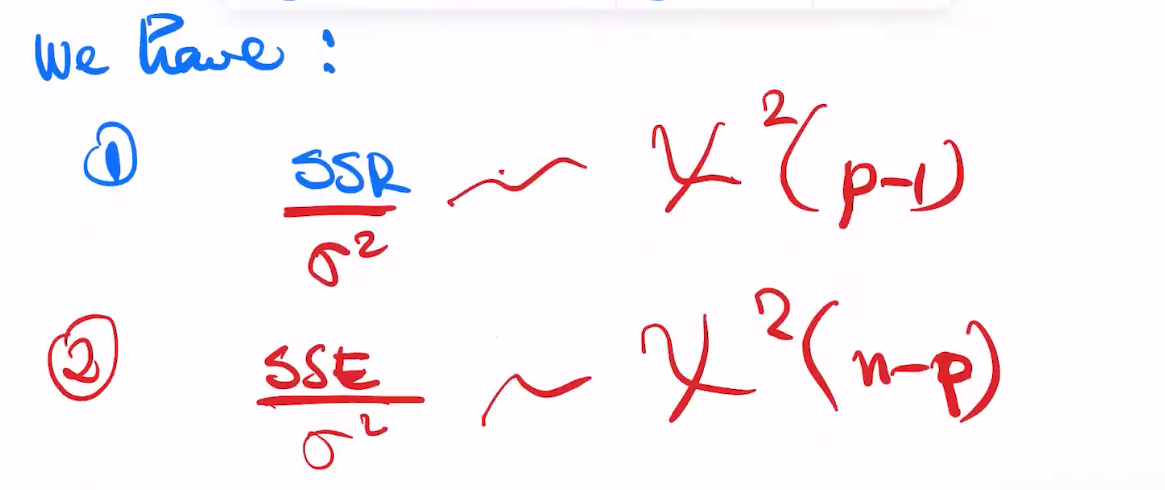 We have :
① SSR/σ² ~ χ²(p-1)
② SSE/σ² ~ χ²(n-p)